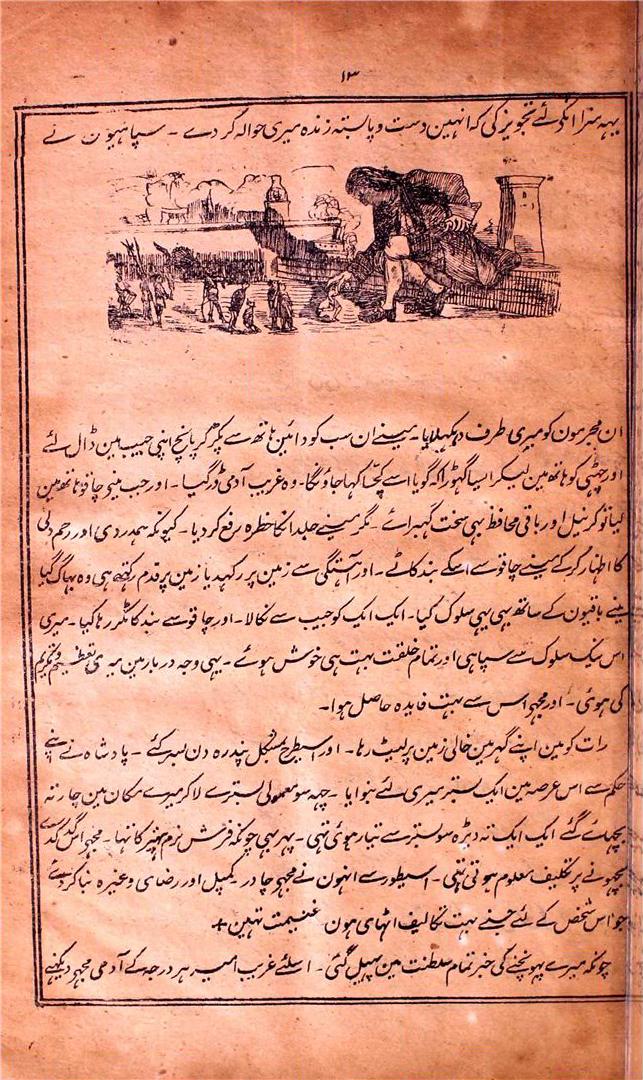 ۱۳
یہہ سزا انکی لئے تجویز کی کہ انہین دست و پا بستہ زندہ میری حوالہ کر دے ۔ سپاہیون نے
ان مجرمون کو میری طرف دہکیلایا ۔ مینے ان سب کو دائین ہاتھ سے پکڑ کر پانچ اپنی جیب مین ڈال لئے
اور چہٹی کو ہاتھ مین لیکر ایسا گہورا کہ گویا اسے کچا کہا جاؤنگا ۔ وہ غریب آدمی ڈر گیا ۔ اور جب مینے چاقو ہاتھ مین
لیا تو کرنیل اور باقی محافظ بہی سخت گہبرائے ۔ مگر مینے جلد انکا خطرہ رفع کر دیا ۔ کیونکہ ہمدردی اور رحم دلی
کا اظہار کر کے مینے چاقو سے اسکے بند کاٹے ۔ اور آہستگی سے زمین پر رکہدیا زمین پر قدم رکہتے ہی وہ بہاگ گیا
مینے باقیون کے ساتھ بہی یہی سلوک کیا ۔ ایک ایک کو جیب سے نکالا ۔ اور چاقو سے بند کاٹکر رہا کیا ۔ میری
اس نیک سلوک سے سپاہی اور تمام خلقت بہت ہی خوش ہوئے ۔ یہی وجہ دربار مین میری تعظیم و تکریم
کی ہوئی ۔ اور مجہو اس سے بہت فایدہ حاصل ہوا ۔
رات کو مین اپنے گہر مین خالی زمین پر لیٹ رہا ۔ اور اسیطرح بمشکل پندرہ دن بسر کئے ۔ پادشاہ نے اپنے
حکم سے اس عرصہ مین ایک بستر میری لئے بنوایا ۔ چہہ سو معمولی بسترے لاکر میرے مکان مین چار تہ
بچہائے گئے ایک ایک تہ ڈیڑہ سو بستر سے تیار ہوئی تہی ۔ پہر بہی چونکہ فرش نرم پتہر کا تہا ۔ مجہو اس گدگدے
بچہونے پر تکلیف معلوم ہوتی تہی ۔ اسیطور سے انہون نے مجہو چادر کمپل اور رضای وغیرہ بنا کر دئے
جو اس شخص کے لئے جسنے بہت تکالیف اٹہای ہون غنیمت تہین +
چونکہ میرے پہونچنے کی خبر تمام سلطنت مین پہیل گئی ۔ اسلئے غریب امیر ہر درجہ کے آدمی مجہو دیکہنے